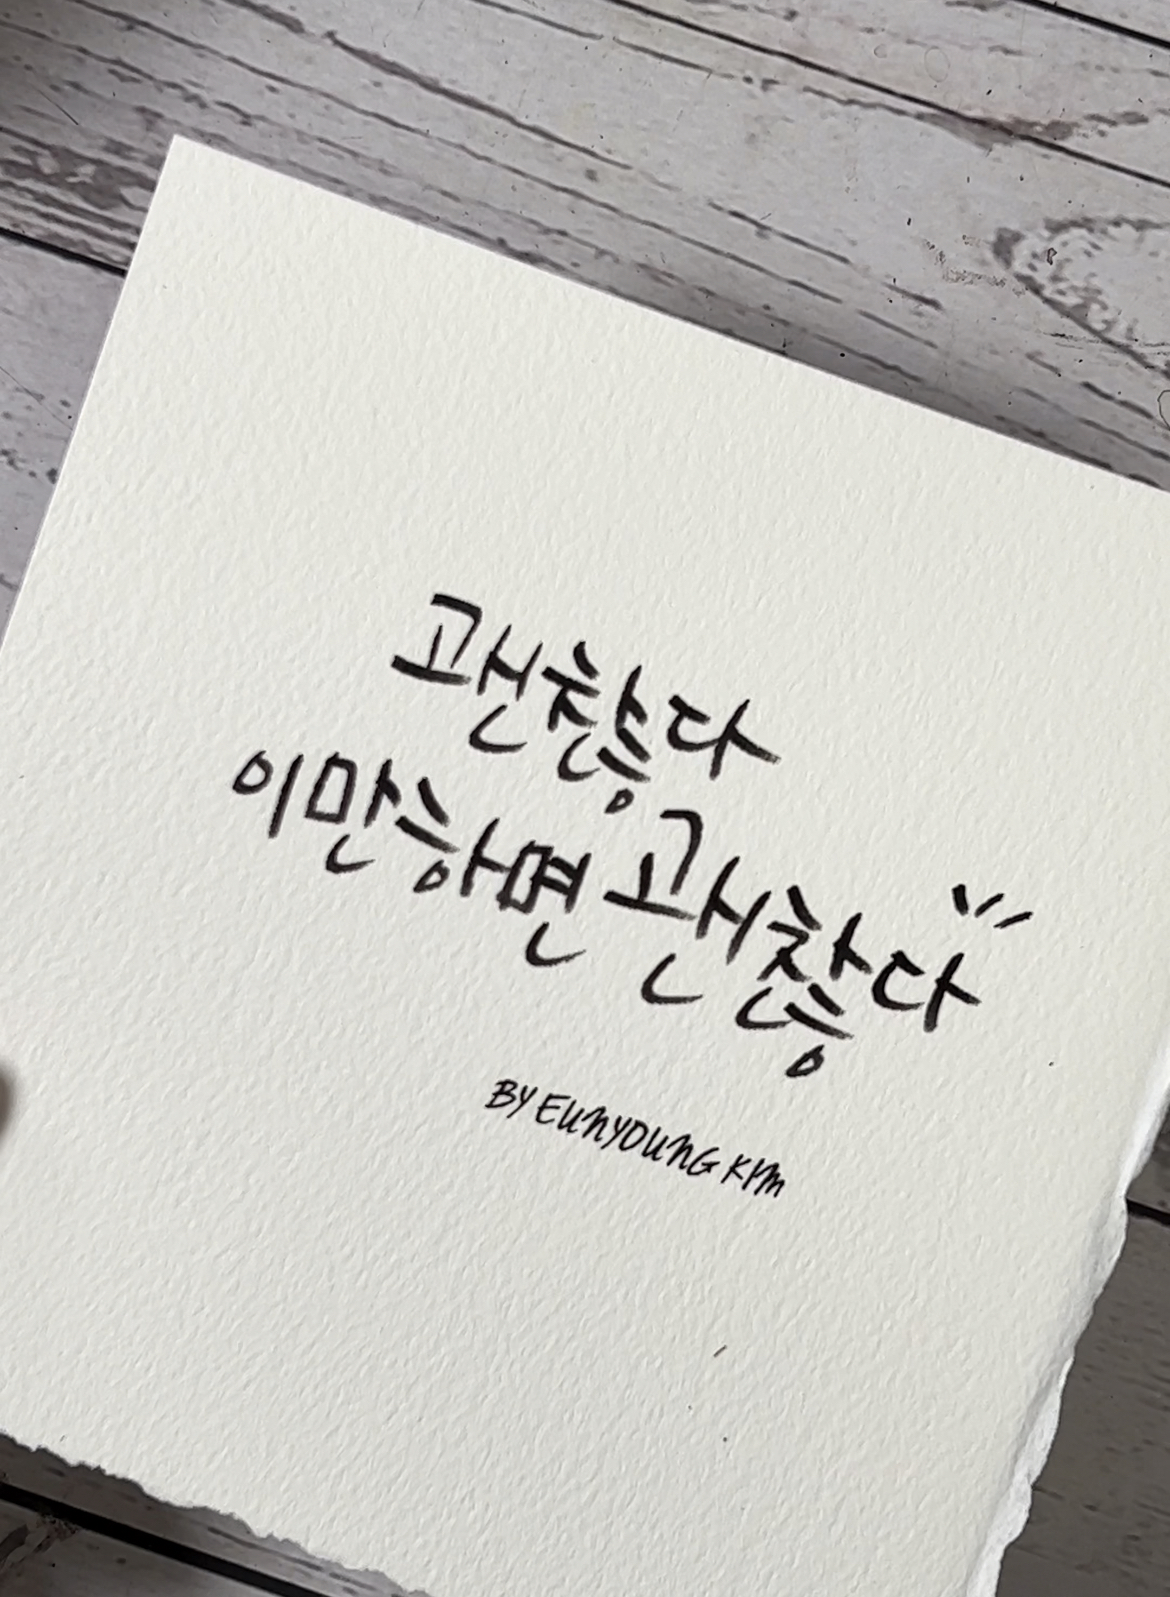 괜찮다
이만하면 괜찮다
BY EUNYOUNG KIM